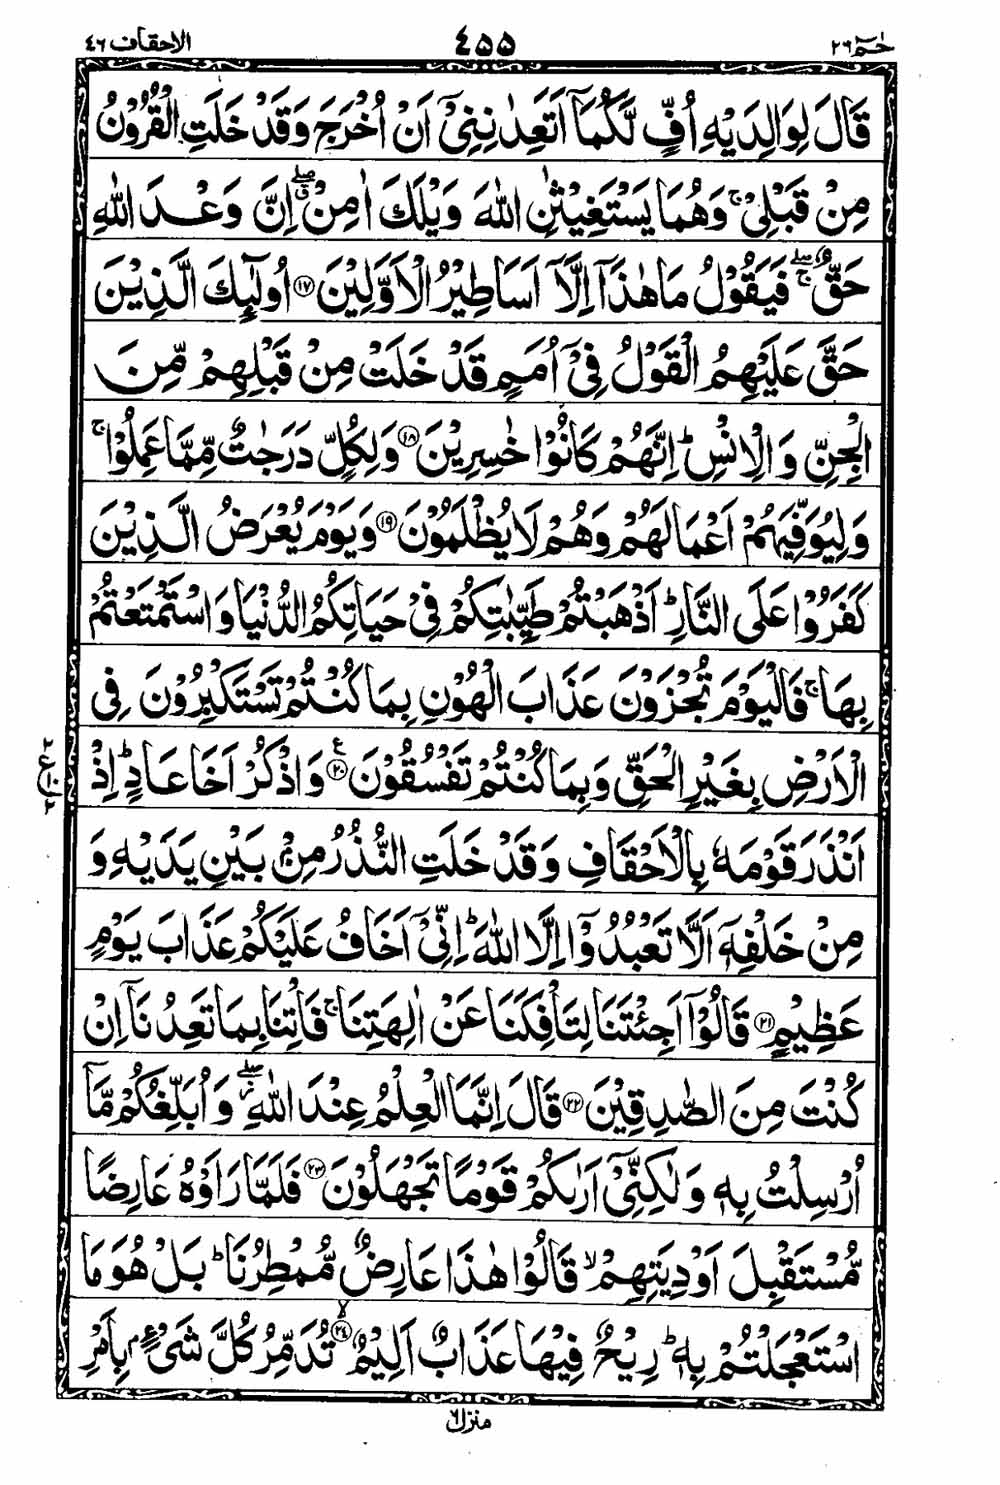 حٰمٓ ٢٦ ٤٥٥ الاحقاف ٤٦
قَالَ لِوَالِدَيْهِ اُفٍّ لَّكُمَاۤ اَتَعِدٰنِنِيْۤ اَنْ اُخْرَجَ وَقَدْ خَلَتِ الْقُرُوْنُ
مِنْ قَبْلِيْ ۚ وَهُمَا يَسْتَغِيْثٰنِ اللّٰهَ وَيْلَكَ اٰمِنْ ۖۗ اِنَّ وَعْدَ اللّٰهِ
حَقٌّ ۚۖ فَيَقُوْلُ مَا هٰذَاۤ اِلَّاۤ اَسَاطِيْرُ الْاَوَّلِيْنَ ﴿١٧﴾ اُولٰٓئِكَ الَّذِيْنَ
حَقَّ عَلَيْهِمُ الْقَوْلُ فِيْۤ اُمَمٍ قَدْ خَلَتْ مِنْ قَبْلِهِمْ مِّنَ
الْجِنِّ وَالْاِنْسِ ؕ اِنَّهُمْ كَانُوْا خٰسِرِيْنَ ﴿١٨﴾ وَلِكُلٍّ دَرَجٰتٌ مِّمَّا عَمِلُوْا ۚ
وَلِيُوَفِّيَهُمْ اَعْمَالَهُمْ وَهُمْ لَا يُظْلَمُوْنَ ﴿١٩﴾ وَيَوْمَ يُعْرَضُ الَّذِيْنَ
كَفَرُوْا عَلَى النَّارِ ؕ اَذْهَبْتُمْ طَيِّبٰتِكُمْ فِيْ حَيَاتِكُمُ الدُّنْيَا وَاسْتَمْتَعْتُمْ
بِهَا ۚ فَالْيَوْمَ تُجْزَوْنَ عَذَابَ الْهُوْنِ بِمَا كُنْتُمْ تَسْتَكْبِرُوْنَ فِي
الْاَرْضِ بِغَيْرِ الْحَقِّ وَبِمَا كُنْتُمْ تَفْسُقُوْنَ ﴿٢٠﴾ ع وَاذْكُرْ اَخَا عَادٍ ؕ اِذْ
٢ ع ١٠ ٢
اَنْذَرَ قَوْمَهٗ بِالْاَحْقَافِ وَقَدْ خَلَتِ النُّذُرُ مِنْۢ بَيْنِ يَدَيْهِ وَ
مِنْ خَلْفِهٖۤ اَلَّا تَعْبُدُوْۤا اِلَّا اللّٰهَ ؕ اِنِّيْۤ اَخَافُ عَلَيْكُمْ عَذَابَ يَوْمٍ
عَظِيْمٍ ﴿٢١﴾ قَالُوْۤا اَجِئْتَنَا لِتَاْفِكَنَا عَنْ اٰلِهَتِنَا ۚ فَاْتِنَا بِمَا تَعِدُنَاۤ اِنْ
كُنْتَ مِنَ الصّٰدِقِيْنَ ﴿٢٢﴾ قَالَ اِنَّمَا الْعِلْمُ عِنْدَ اللّٰهِ ۖ وَاُبَلِّغُكُمْ مَّاۤ
اُرْسِلْتُ بِهٖ وَلٰكِنِّيْۤ اَرٰىكُمْ قَوْمًا تَجْهَلُوْنَ ﴿٢٣﴾ فَلَمَّا رَاَوْهُ عَارِضًا
مُّسْتَقْبِلَ اَوْدِيَتِهِمْ ۙ قَالُوْا هٰذَا عَارِضٌ مُّمْطِرُنَا ؕ بَلْ هُوَ مَا
اسْتَعْجَلْتُمْ بِهٖ ؕ رِيْحٌ فِيْهَا عَذَابٌ اَلِيْمٌ ﴿٢٤﴾ ۙ تُدَمِّرُ كُلَّ شَيْءٍۭ بِاَمْرِ
منزل ٦